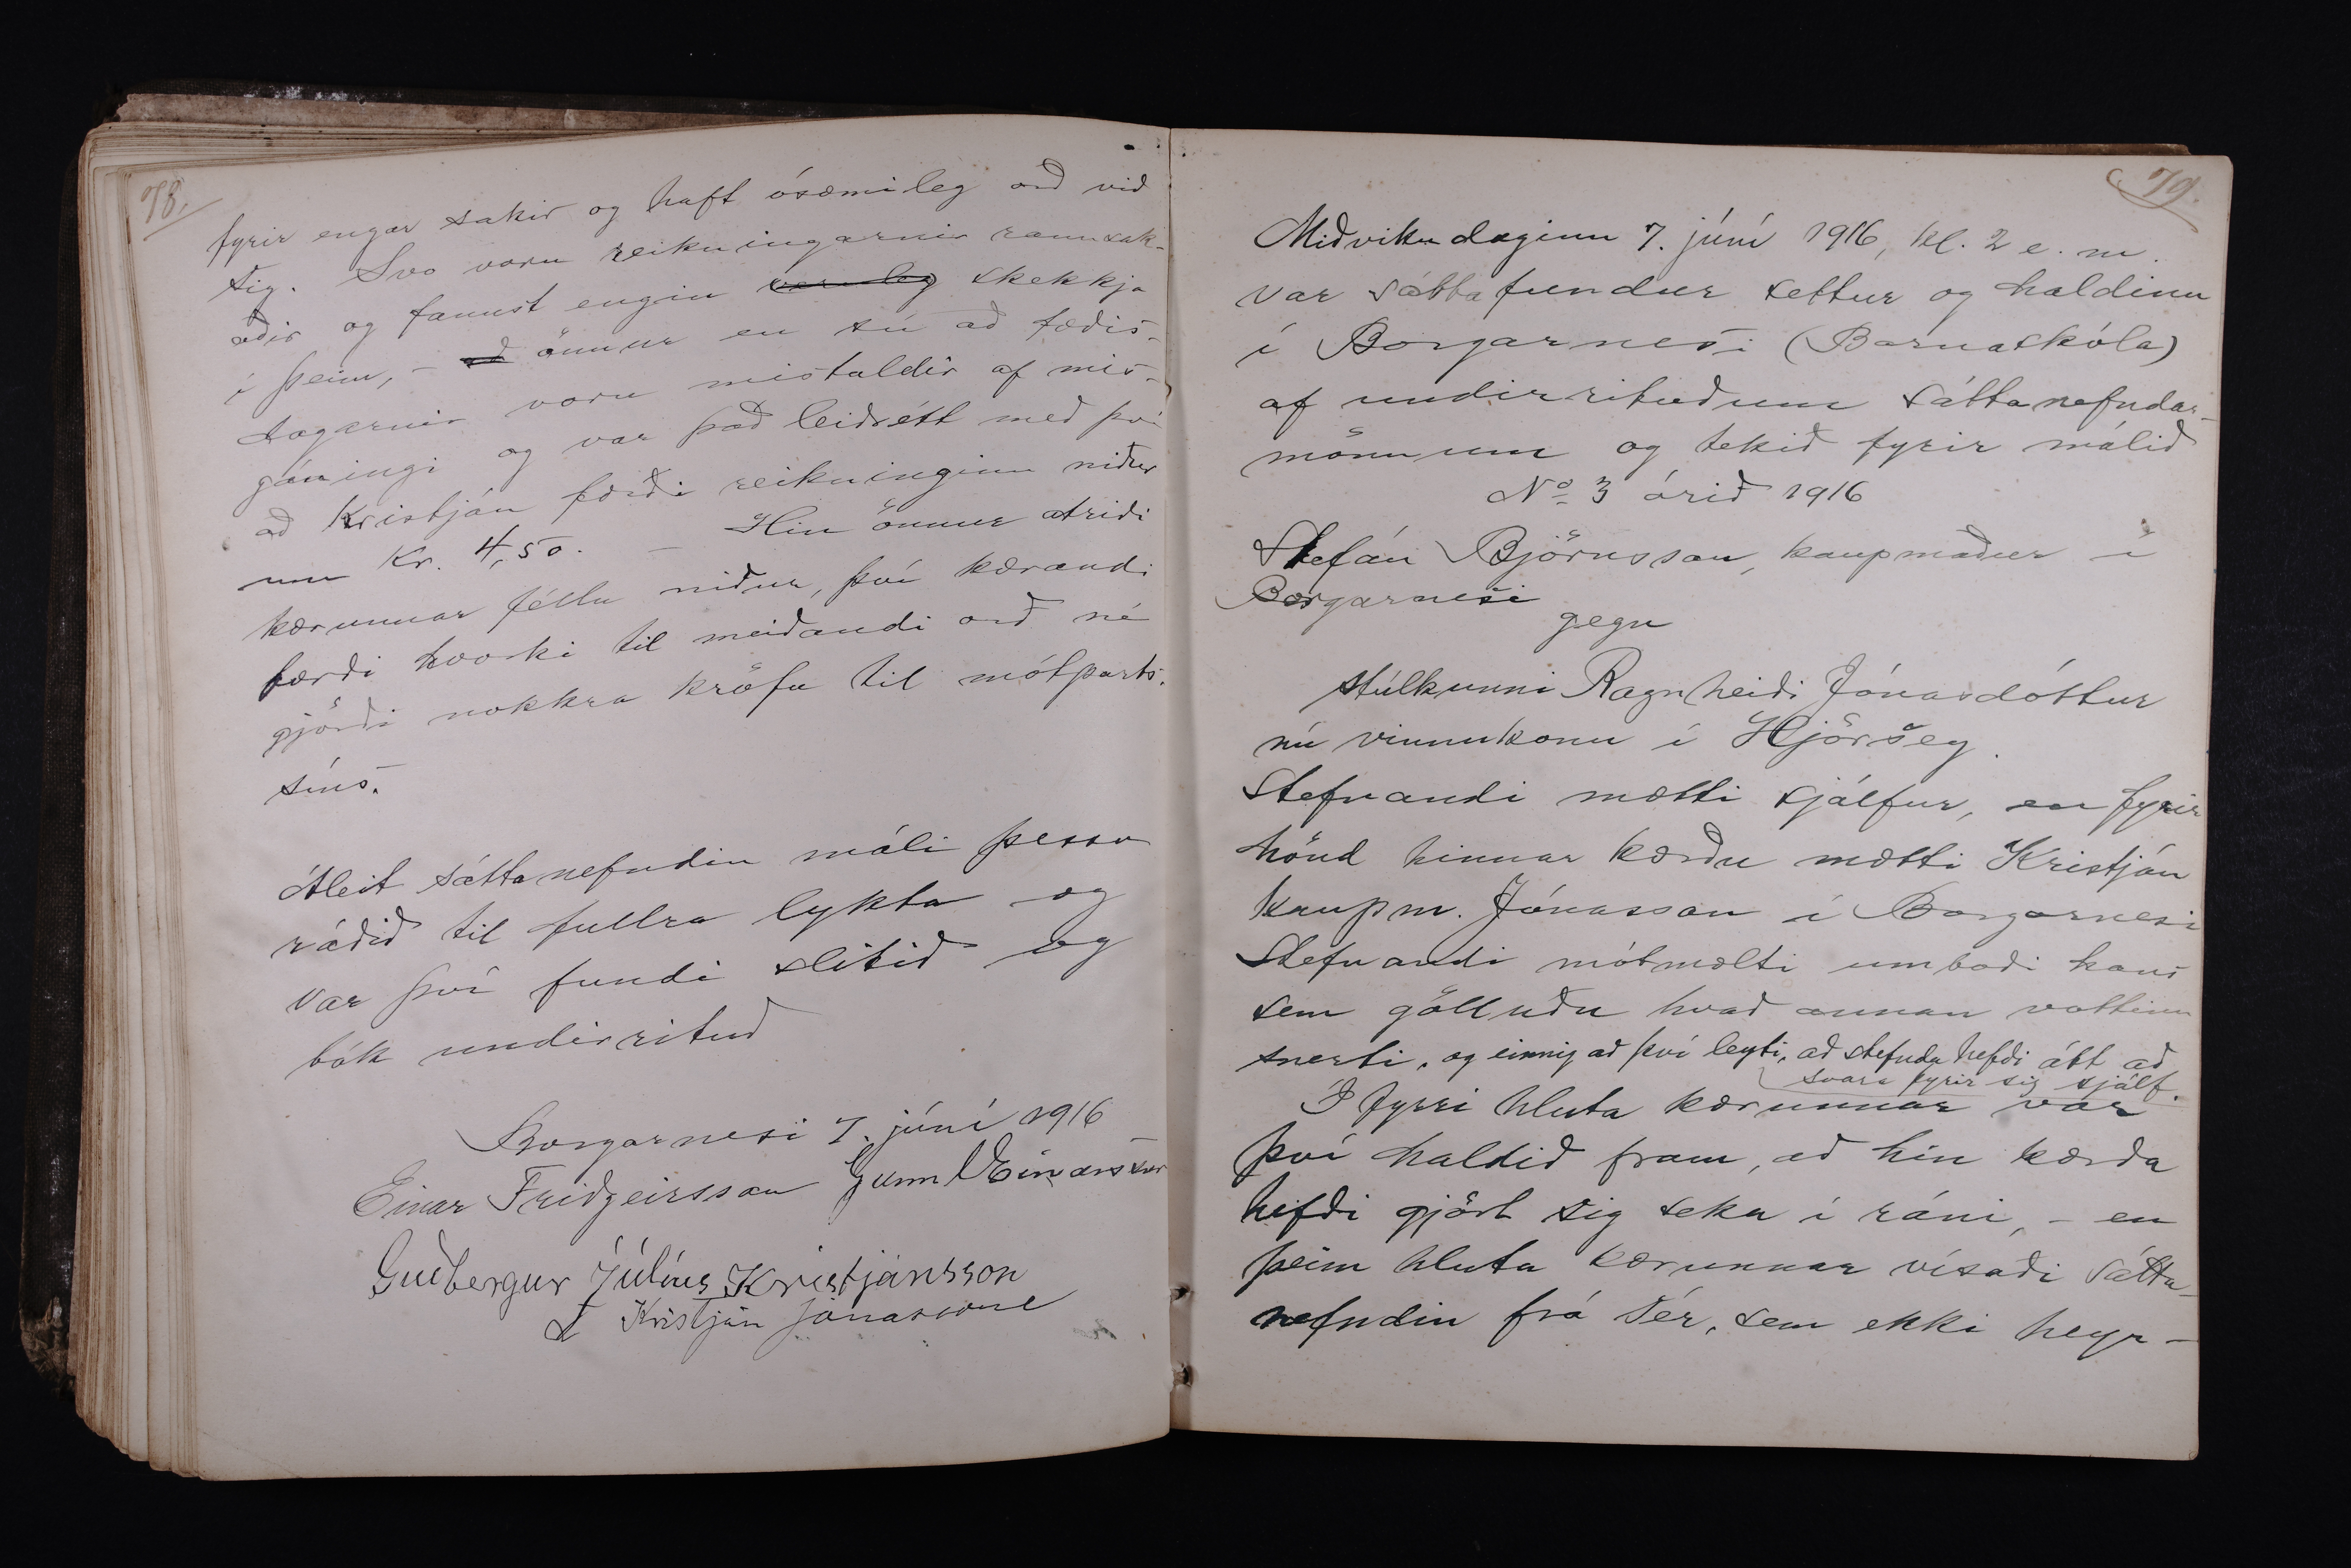 78.
fyrir engar sakir og haft ósæmileg orð við
sig. Svo voru reikningarnir rannsak-
aðir og fannst engin veruleg skekkja
í þeim, - að önnur en sú að fæðis-
dagarnir voru mistaldir af mis-
gáningi og var það leiðrétt með því
að Kristján færði reikninginn niður
um Kr. 4,50. - Hin önnur atriði
kærunnar féllu niður, því kærandi
færði hvorki til meiðandi orð né
gjörði nokkra kröfu til mótparts.
síns.
Áleit sáttanefndin máli þessu
ráðið til fullra lykta og
var því fundi slitið og
bók undirrituð
Borgarnesi 7. júní 1916
Einar Friðgeirsson Gunnl Einarsson
Guðbergur Júlíus Kristjánsson
Kristján Jónasson
79.
Miðvikudaginn 7. júní 1916, kl. 2 e. m.
var sáttafundur settur og haldinn
í Borgarnesi (Barnaskóla)
af undirrituðum sáttanefndar-
mönnum og tekið fyrir málið
No 3 árið 1916
Stefán Björnsson, kaupmaður í
Borgarnesi
gegn
stúlkunni Ragnheiði Jónasdóttur
nú vinnukonu í Hjörsey.
Stefnandi mætti sjálfur, en fyrir
hönd hinnar kærðu mætti Kristján
kaupm. Jónasson í Borgarnesi
Stefnandi mótmælti umboði hans
sem gölluðu hvað annan vottinn
snerti, og einnig að því leyti, að stefnda hefði átt að
svara fyrir sig sjálf.
Í fyrri hluta kærunnar var
því haldið fram, að hin kærða
hefði gjört sig seka í ráni, - en
þeim hluta kærunnar vísaði sátta-
nefndin frá sér, sem ekki heyr-